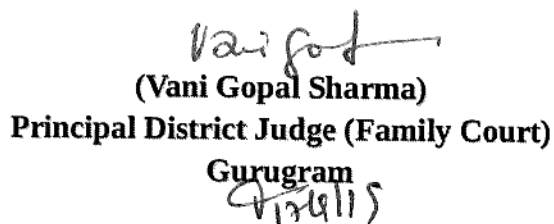 (Vani Gopal Sharma)
Principal District Judge (Family Court)
Gurugram